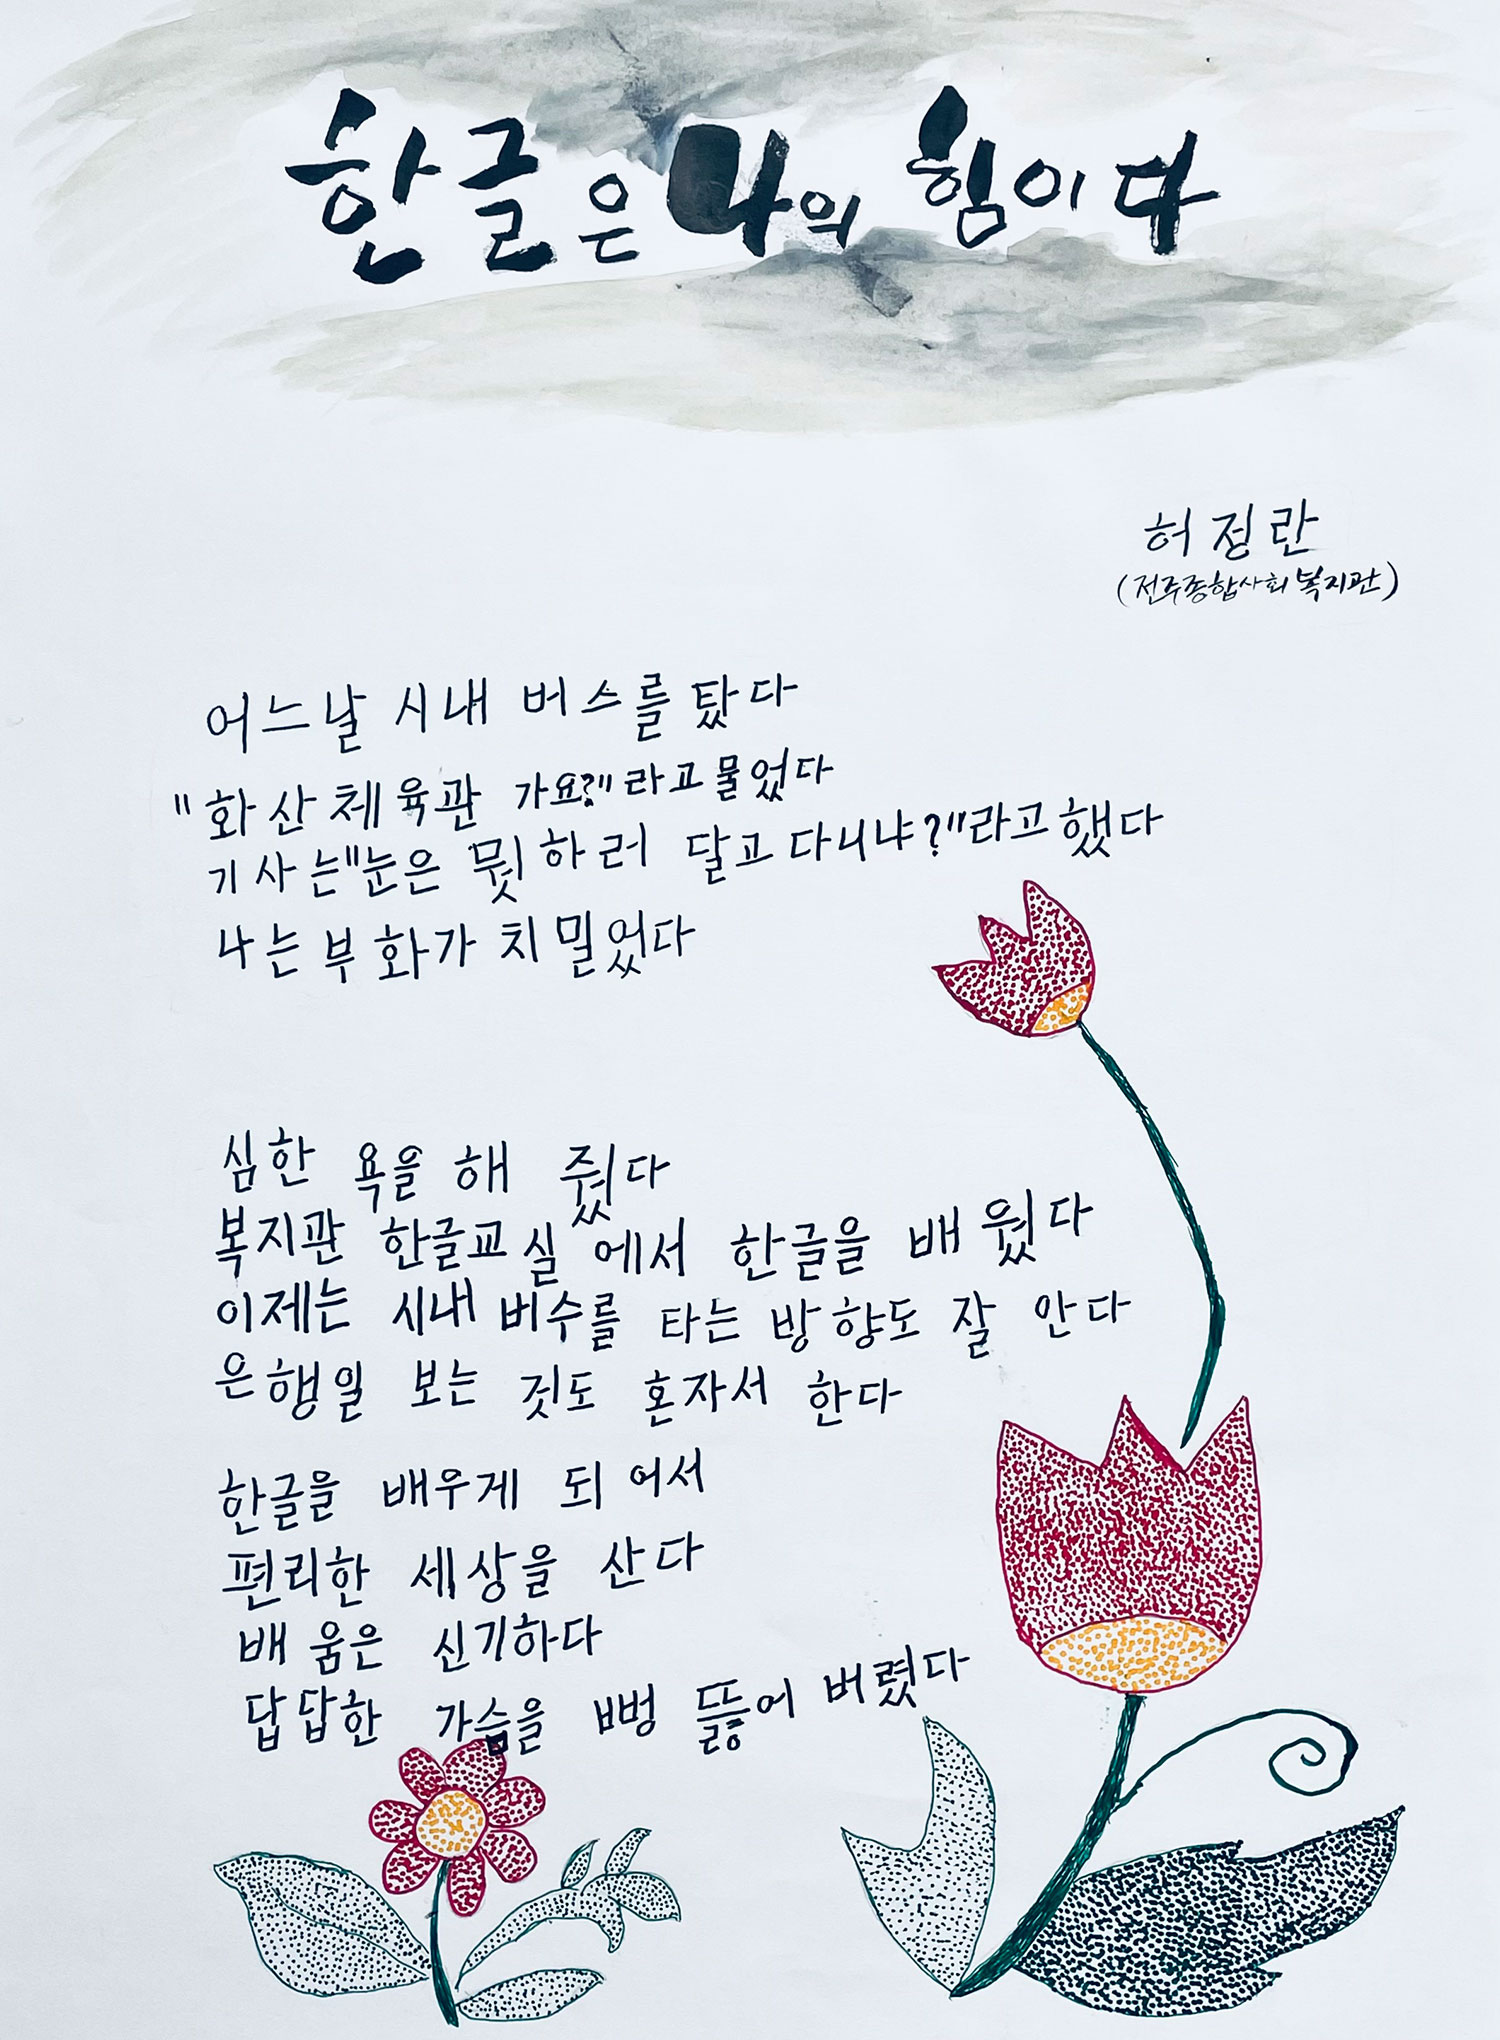 한글은 나의 힘이다
허정란
(전주종합사회복지관)
어느날 시내 버스를 탔다
"화산체육관 가요?"라고 물었다
기사는"눈은 뭣하러 달고 다니냐?"라고 했다
나는 부화가 치밀었다
심한 욕을 해 줬다
복지관 한글교실에서 한글을 배웠다
이제는 시내 버수를 타는 방향도 잘 안다
은행일 보는 것도 혼자서 한다
한글을 배우게 되어서
편리한 세상을 산다
배움은 신기하다
답답한 가슴을 뻥 뚫어 버렸다